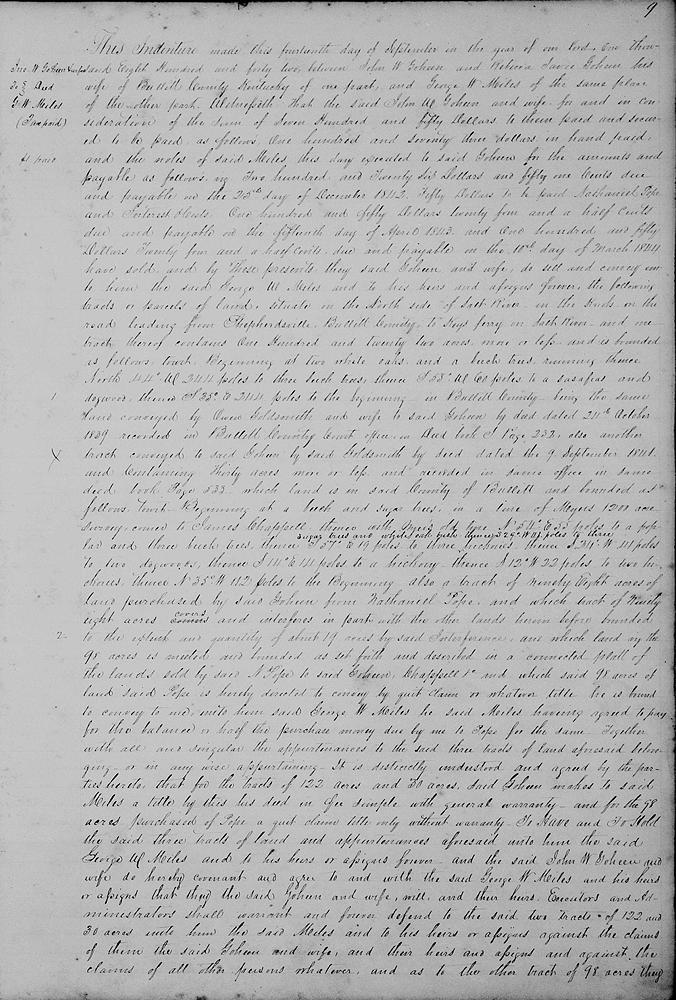 9
This Indenture made this fourteenth day of September in the year of our lord, One thou-
sand Eight Hundred and forty two, between John W Goheen and Goheen his
wife of Bullett County Kentucky of one part, and George W Meles of the same place
of the other part. Witnesseth That the said John W Goheen and wife for and in con-
sideration of the sum of Seven Hundred and fifty Dollars to them paid and secur-
ed to be paid as follows, One hundred and Seventy three dollars in hand paid,
and the notes of said Meles this day executed to said Goheen for the amounts and
payable as follows. viz Two hundred and Twenty Six Dollars and fifty one Cents due
and payable on the 25th day of December 1842. Fifty Dollars to be paid Nathaniel Pope
and Interest & Costs One hundred and fifty Dollars twenty four and a half Cents
due and payable on the fifteenth day of April 1843. and One hundred and fifty
Dollars Twenty four and a half Cents, due and payable on the day of March 1844
have sold and by These presents they said Goheen and wife, do sell and convey un-
to him the said George W Meles and to his heirs and assigns forever, the following
tracts or parcels of land, situate on the North side of Salt River in the on the
road leading from Shepherdsville, Bullett County, to Keys ferry on Salt River and one
tract thereof contains One Hundred and twenty two acres more or less and is bounded
as follows towit. Beginning at two white oaks and a beech tree, running thence
North 44° W 244 poles to three beech trees, thence S 55° W 60 poles to a sasafras and
dogwood, thence S 35° E 244 poles to the beginning in Bullett County being the same
land conveyed by Owen Goldsmith and wife to said Goheen by deed dated 24th October
1839 recorded in Bullett County Court office, in Deed book I Page 232, also another
tract conveyed to said Goheen by said Goldsmith by deed dated the 9 September 1841.
and Containing Thirty acres more or less and recorded in same office in same
deed book Page 533 which land is in said County of Bullett and bounded as
follows towit Beginning at a beech and sugar tree, in a line of Meyers 1200 acre
survey, corner to James Chappell, thence with Myers old line N 54° E 55 poles to a pop-
sugar tree and white oak bush thence S 29° W poles to three
lar and three beech trees, thence S 57° E 19 poles to three hickories. thence S 21° W 44 poles
to two dogwoods, thence S 14° E 44 poles to a hickory thence S 12° W 22 poles to two hi-
chories, thence N 35° W 112 poles to the Beginning also a tract of ninety Eight acres of
Land purchased by said Goheen from Nathaniel Pope, and which tract of Ninety
covers
eight acres and interferes in part with the other lands herein before bounded
to the extent and quantity of about 19 acres by said Interference, and which land viz the
98 acres is meeted and bounded as set forth and described in a connected platt of
the lands sold by said N Pope to said Goheen, Chappell &c and which said 98 acres of
land said Pope is hereby directed to convey by quit claim or whatever title he is bound
to convey to me, unto him said George W Meles he said Meles having agreed to pay
for the balance or half the purchase money due by me to Pope for the same Together
with all and singular the appurtenances to the said three tracts of land aforesaid belon-
ging or in any wise appurtaining It is distinctly understood and agreed by the par-
ties hereto, that for the tracts of 122 acres and 30 acres, said Goheen makes to said
Meles a title by this his deed in fee simple with general warranty and for the 98
acres purchased of Pope a quit claim title only without warranty To Have and To Hold
the said three tracts of land and appurtenances aforesaid unto him the said
George W Meles and to his heirs or assigns forever and the said John W Goheen and
wife do hereby covenant and agree to and with the said George W Meles and his heirs
or assigns that they the said Goheen and wife, will, and their heirs, Executors and Ad-
ministrators shall warrant and forever defend to the said two Tracts of 122 and
30 acres unto him the said Meles and to his heirs or assigns against the claims
of them the said Goheen and wife, and their heirs and assigns and against the
claims of all other persons whatever, and as to the other tract of 98 acres they
Jno. W Goheen & wife
To } Deed
G. W. Meles
(Tax paid)
1
X
2